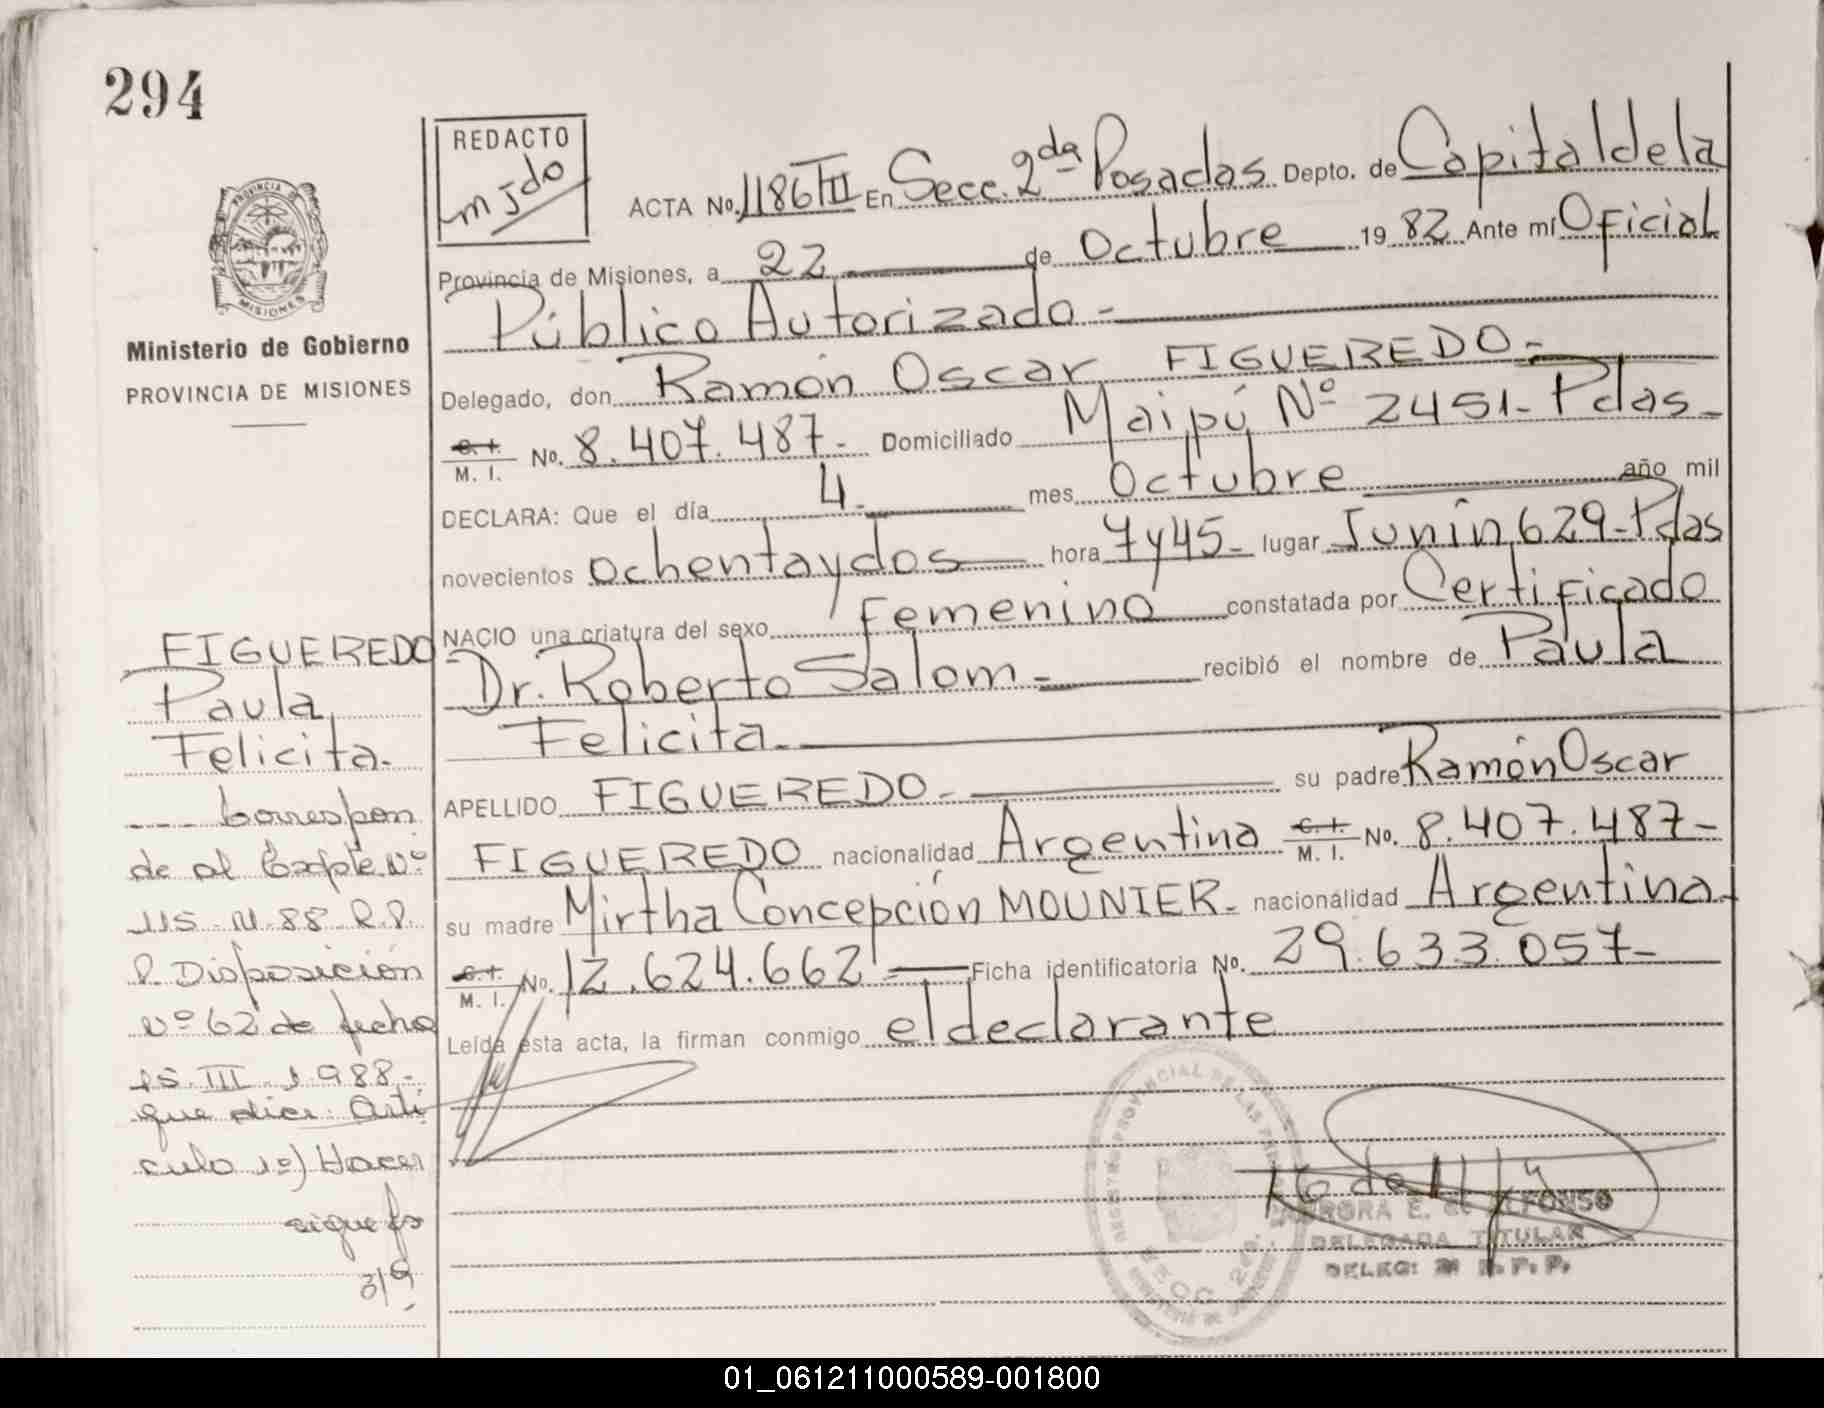 294
REDACTO
mjdo
ACTA No. 1186 TII En Secc. 2da Posadas Depto. de Capital de la
Provincia de Misiones, a 22 de Octubre 1982 Ante mí Oficial
Público Autorizado -
Delegado, don Ramón Oscar FIGUEREDO -
C. I.
M. I. No. 8.407.487 - Domiciliado Maipú Nº 2451 - Pdas -
DECLARA: Que el día 4 mes Octubre año mil
novecientos ochenta y dos hora 7 y 45 - lugar Junín 629 - Pdas
NACIO una criatura del sexo femenino constatada por Certificado
Dr. Roberto Salom - recibió el nombre de Paula
Felicita
APELLIDO FIGUEREDO - su padre Ramón Oscar
FIGUEREDO nacionalidad Argentina C. I. M. I. No. 8.407.487 -
su madre Mirtha Concepción MOUNIER - nacionalidad Argentina
C. I.
M. I. No. 12.624.662 - Ficha identificatoria No. 29.633.057 -
Leída esta acta, la firman conmigo el declarante
PROVINCIA DE
MISIONES
Ministerio de Gobierno
PROVINCIA DE MISIONES
FIGUEREDO
Paula
Felicita -
Correspon
de al Expte Nº
115 - M - 88 R.P.
P. Disposición
Nº 62 de fecha
15 - III - 1.988 -
que dice: Artí
culo 1º) Hacer
sigue fs
3/9
REGISTRO PROVINCIAL DE LAS
SECC 2da.
AURORA E. de ALFONSO
DELEGADA TITULAR
DELEG: R. P. P.
01_061211000589-001800